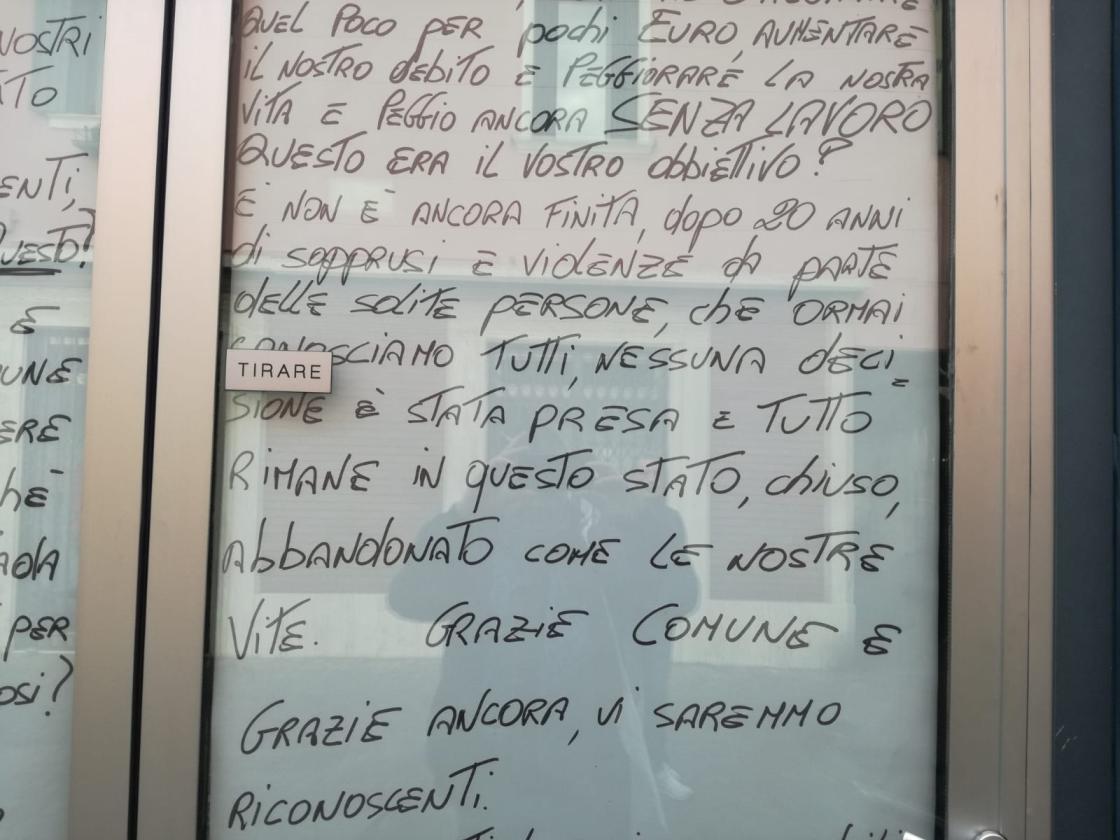 NOSTRI
ENTI,
QUESTO?
E
UNE
ERE
PER
OSI?
QUEL POCO PER pochi EURO, AUMENTARE
il NOSTRO debito E PEGGIORARE LA NOSTRA
VITA E PEGGIO ANCORA SENZA LAVORO
QUESTO ERA il VOSTRO obbiettivo?
E NON È ANCORA FINITA, dopo 20 ANNI
di soppRUSi E ViolENZE dA PARTE
dELLE SOLITE PERSONE, chE ORMAI
CONOSCIAMO TUTTI, NESSUNA dECI=
TIRARE
SIONE È STATA PRESA E TUTTO
RIMANE IN QUESTO STATO, chiuso,
AbbANdONATO COME LE NOSTRE
VITE. GRAZIE COMUNE E
GRAZIE ANCORA, Vi SAREMMO
RICONOSCENTI.